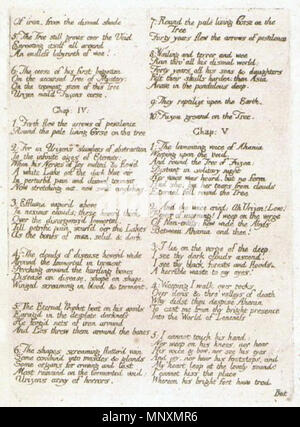 Of iron, from the dismal shade
5: The Tree still grows over the Void
Enrooting itself all around
An endless labyrinth of woe!
6: The corse of his first begotten
On the accursed Tree of Mystery:
On the topmost stem of this Tree
Urizen nail'd Fuzons corse.
Chap: IV.
1: Forth flew the arrows of pestilence
Round the pale living Corse on the tree
2: For in Urizens slumbers of abstraction
In the infinite ages of Eternity:
When his Nerves of Joy melted & flow'd
A white Lake on the dark blue air
In perturb'd pain and dismal torment
Now stretching out, now swift conglobing.
3: Effluvia vapor'd above
In noxious clouds; these hover'd thick
Over the disorganiz'd Immortal,
Till petrific pain scurf'd o'er the Lakes
As the bones of man, solid & dark
4: The clouds of disease hover'd wide
Around the Immortal in torment
Perching around the hurtling bones
Disease on disease, shape on shape,
Winged screaming in blood & torment.
5: The Eternal Prophet beat on his anvils
Enrag'd in the desolate darkness
He forg'd nets of iron around
And Los threw them around the bones
6: The shapes screaming flutter'd vain
Some combin'd into muscles & glands
Some organs for craving and lust
Most remain'd on the tormented void:
Urizens army of horrors.
7: Round the pale living Corse on the
Tree
Forty years flew the arrows of pestilence
8: Wailing and terror and woe
Ran thro' all his dismal world:
Forty years all his sons & daughters
Felt their skulls harden; then Asia
Arose in the pendulous deep.
9: They reptilize upon the Earth.
10: Fuzon groan'd on the Tree.
Chap: V
1: The lamenting voice of Ahania
Weeping upon the void.
And round the Tree of Fuzon:
Distant in solitary night
Her voice was heard, but no form
Had she: but her tears from clouds
Eternal fell round the Tree
2: And the voice cried: Ah Urizen! Love!
Flower of morning! I weep on the verge
Of Non-entity; how wide the Abyss
Between Ahania and thee!
3: I lie on the verge of the deep.
I see thy dark clouds ascend,
I see thy black forests and floods,
A horrible waste to my eyes!
4: Weeping I walk over rocks
Over dens & thro' valleys of death
Why didst thou despise Ahania
To cast me from thy bright presence
Into the World of Loneness
5: I cannot touch his hand:
Nor weep on his knees, nor hear
His voice & bow, nor see his eyes
And joy, nor hear his footsteps, and
My heart leap at the lovely sound!
I cannot kiss the place
Whereon his bright feet have trod,
But
alamy
Image ID: MNXMR6
www.alamy.com